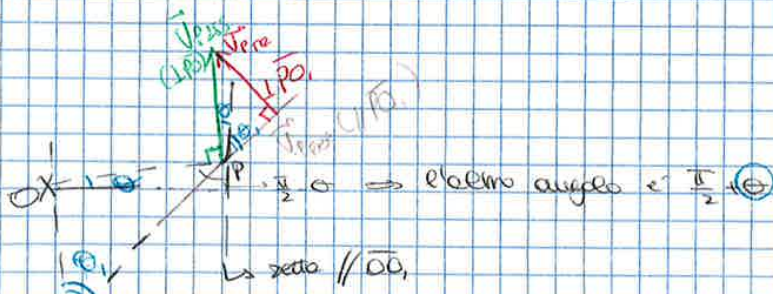 V⃗Pass
(⊥PO)
V⃗Pre
⊥PO₁
(//PO₁)
θ θ₁
O θ P π/2 - θ ⇒ l'altro angolo è π/2 + θ
θ₁ ↳ retta // OO₁